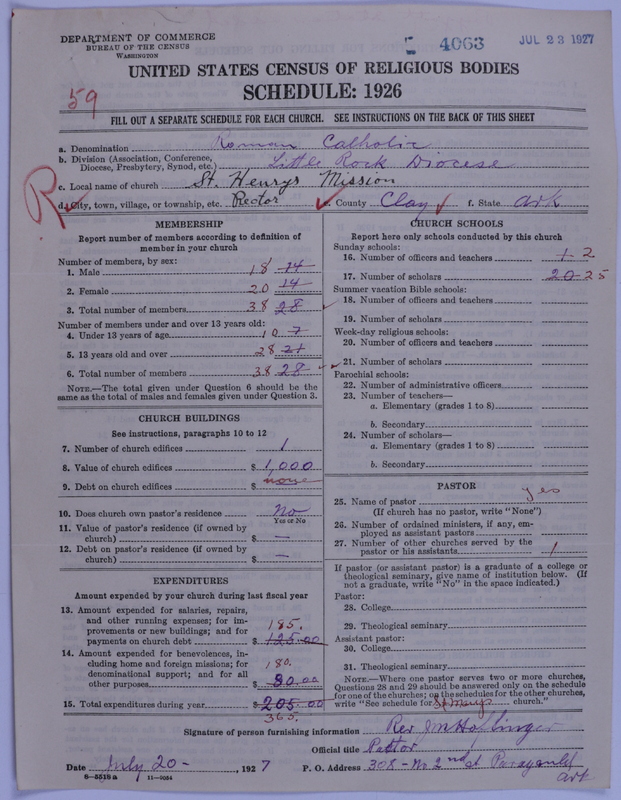 DEPARTMENT OF COMMERCE
BUREAU OF THE CENSUS
WASHINGTON
4063
JUL 23 1927
UNITED STATES CENSUS OF RELIGIOUS BODIES
SCHEDULE: 1926
59
FILL OUT A SEPARATE SCHEDULE FOR EACH CHURCH. SEE INSTRUCTIONS ON THE BACK OF THIS SHEET
a. Denomination Roman Catholic
b. Division (Association, Conference, Diocese, Presbytery, Synod, etc.) Little Rock Diocese
c. Local name of church St. Henrys Mission
R
d. City, town, village, or township, etc. Rector e. County Clay f. State Ark
MEMBERSHIP
Report number of members according to definition of
member in your church
Number of members, by sex:
1. Male 18 14
2. Female 20 14
3. Total number of members 38 28
Number of members under and over 13 years old:
4. Under 13 years of age 10 7
5. 13 years old and over 28 21
6. Total number of members 38 28
NOTE.—The total given under Question 6 should be
same as the total of males and females given under Question 3.
CHURCH BUILDINGS
See instructions, paragraphs 10 to 12
7. Number of church edifices 1
8. Value of church edifices $ 1,000
9. Debt on church edifices $ none
10. Does church own pastor's residence No
Yes or No
11. Value of pastor's residence (if owned by
church) $ —
12. Debt on pastor's residence (if owned by
church) $ —
EXPENDITURES
Amount expended by your church during last fiscal year
13. Amount expended for salaries, repairs,
and other running expenses; for im-
provements or new buildings; and for
payments on church debt $ 185. 125.00
14. Amount expended for benevolences, in-
cluding home and foreign missions; for
denominational support; and for all
other purposes $ 180. 80.00
15. Total expenditures during year $ 205.00
365.
CHURCH SCHOOLS
Report here only schools conducted by this church
Sunday schools:
16. Number of officers and teachers 1 2
17. Number of scholars 20 25
Summer vacation Bible schools:
18. Number of officers and teachers
19. Number of scholars
Week-day religious schools:
20. Number of officers and teachers
21. Number of scholars
Parochial schools:
22. Number of administrative officers
23. Number of teachers—
a. Elementary (grades 1 to 8)
b. Secondary
24. Number of scholars—
a. Elementary (grades 1 to 8)
b. Secondary
PASTOR
25. Name of pastor yes
(If church has no pastor, write "None")
26. Number of ordained ministers, if any, em-
ployed as assistant pastors
27. Number of other churches served by the
pastor or his assistants 1
If pastor (or assistant pastor) is a graduate of a college or
theological seminary, give name of institution below. (If
not a graduate, write "No" in the space indicated.)
Pastor:
28. College
29. Theological seminary
Assistant pastor:
30. College
31. Theological seminary
NOTE.—Where one pastor serves two or more churches,
Questions 28 and 29 should be answered only on the schedule
for one of the churches; on the schedules for the other churches,
write "See schedule for St Marys church."
Signature of person furnishing information Rev J M Hoflinger
Official title Pastor
Date July 20 - , 1927 P. O. Address 308 - No 2nd st Paragould
Ark
6-5518 a 11-9054